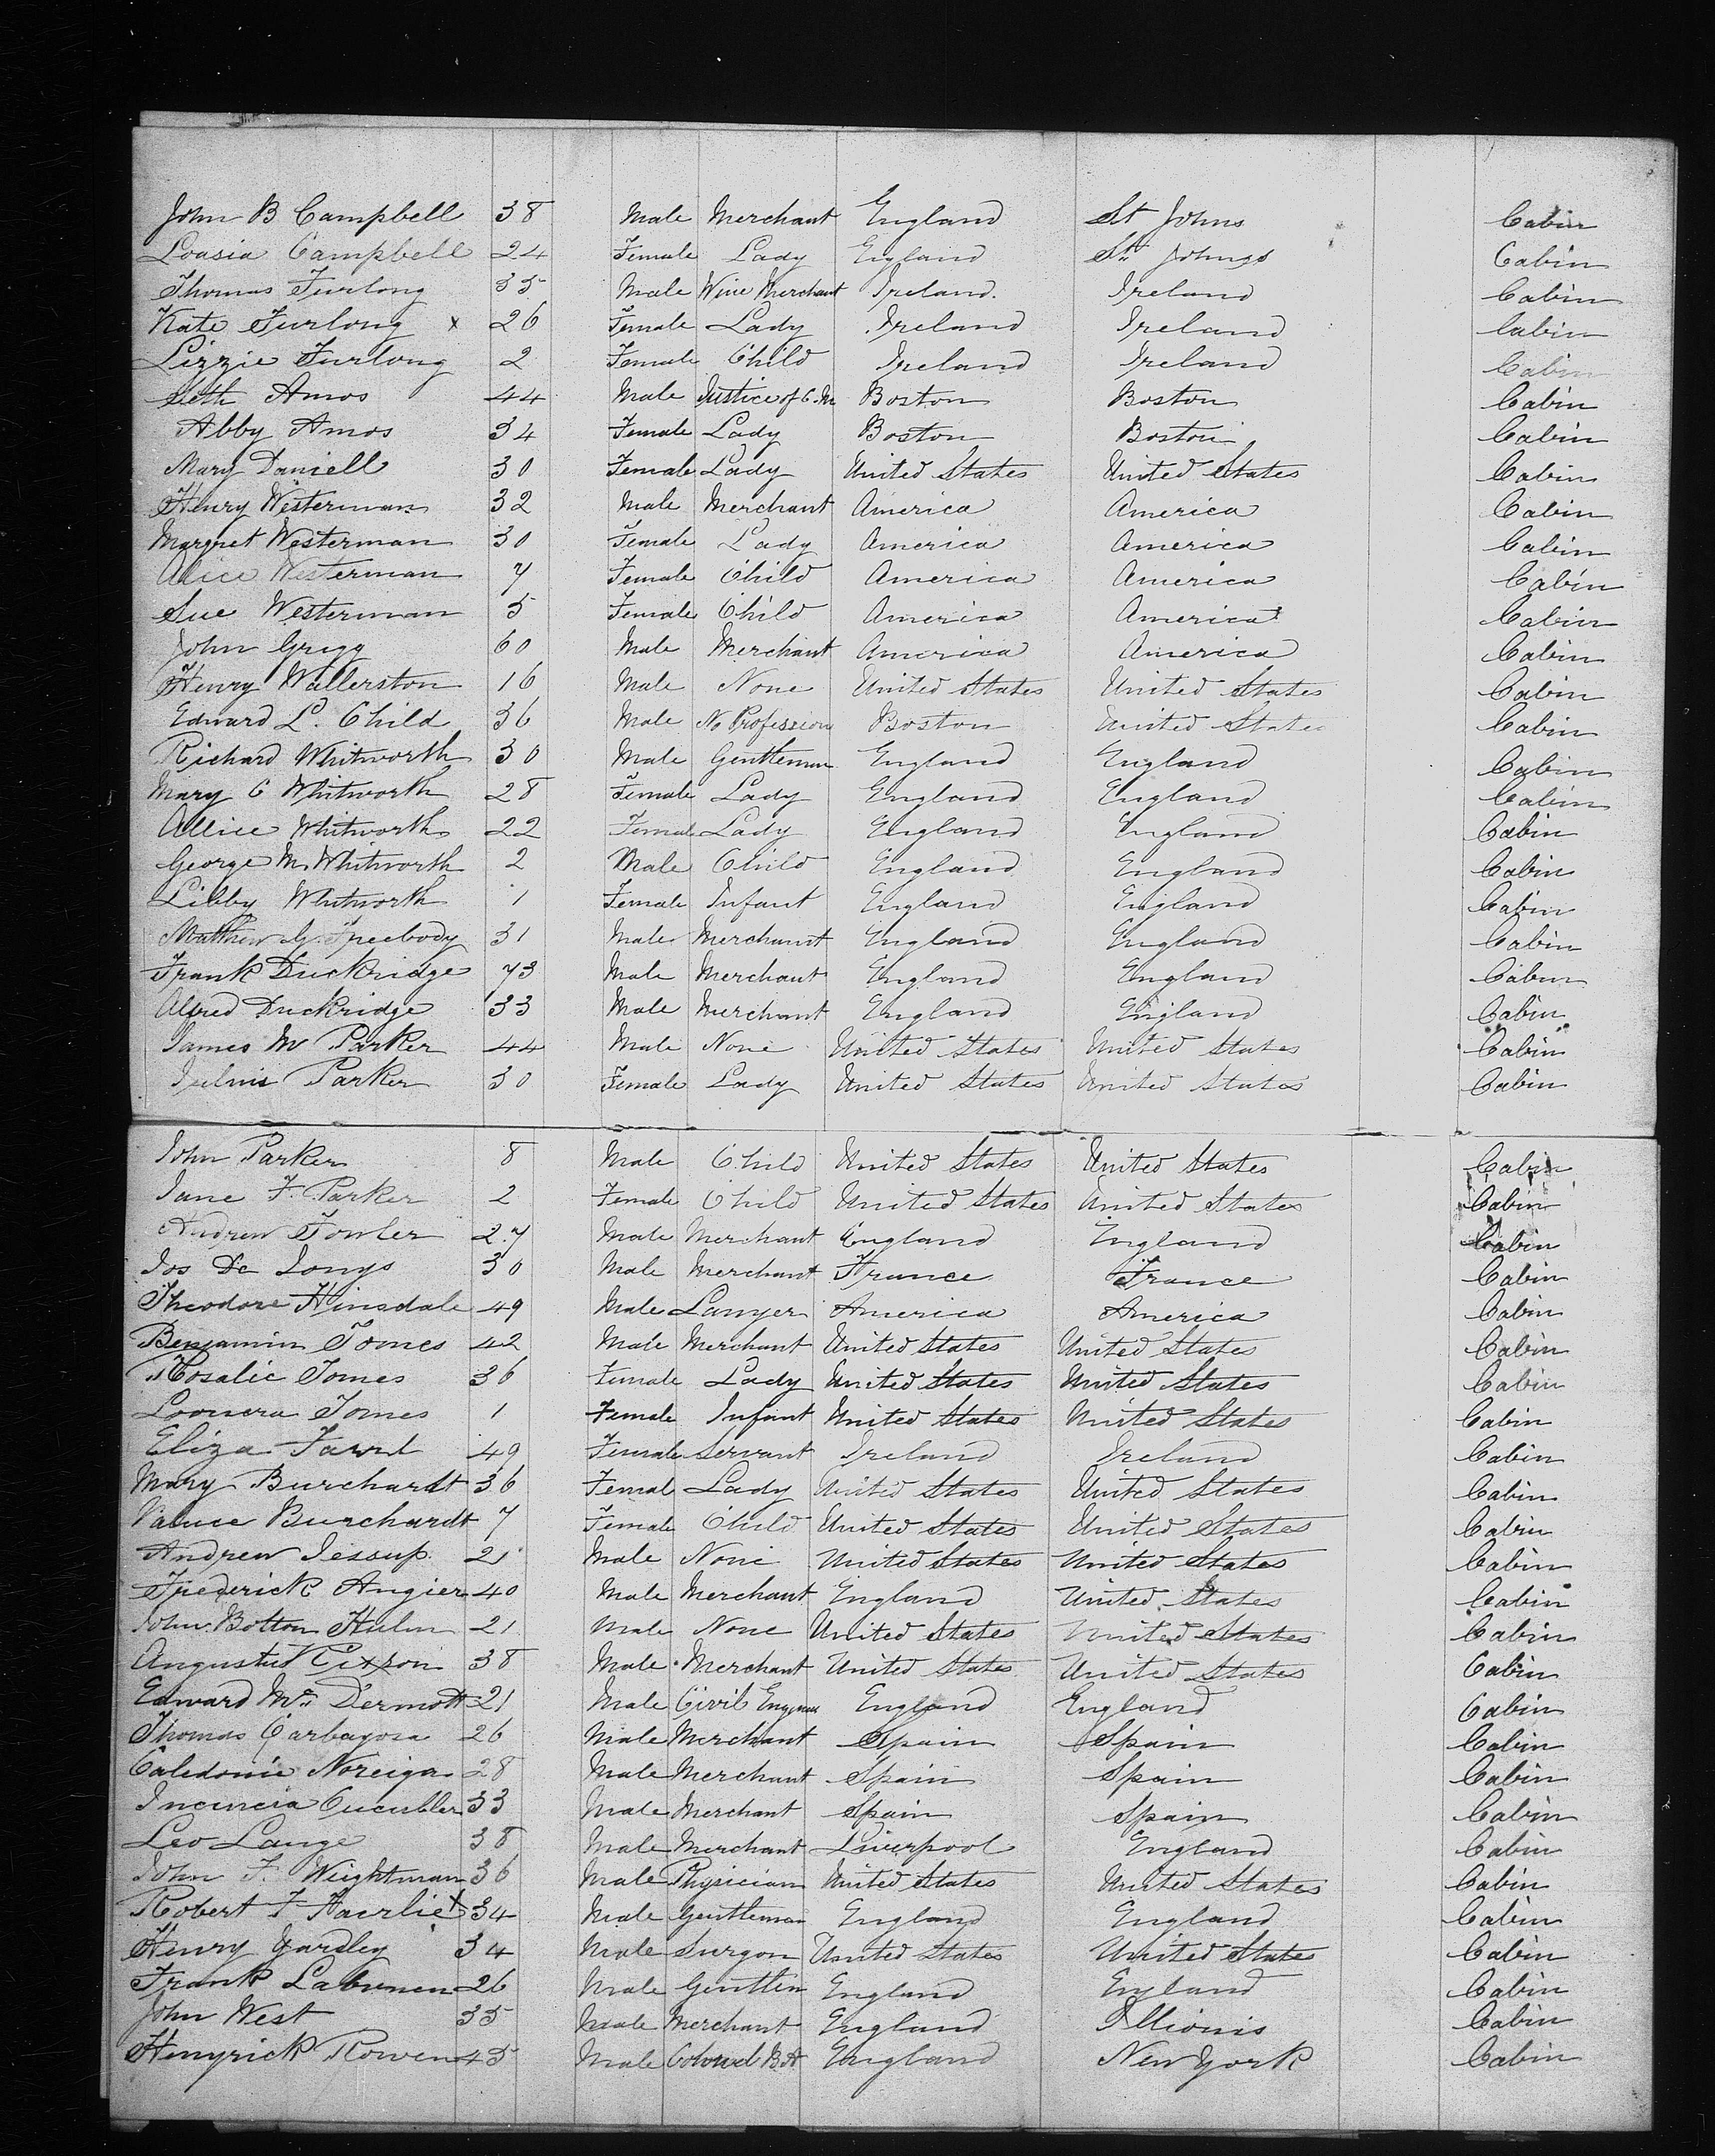 John B Campbell 38 Male Merchant England St Johns Cabin
Loasia Campbell 24 Female Lady England St Johns Cabin
Thomas Furlong 35 Male Wine Merchant Ireland. Ireland Cabin
Kate Furlong x 26 Female Lady Ireland Ireland Cabin
Lizzie Furlong 2 Female Child Ireland Ireland Cabin
Seth Amos 44 Male Justice of C. M Boston Boston Cabin
Abby Amos 34 Female Lady Boston Boston Cabin
Mary Daniell 30 Female Lady United States United States Cabin
Henry Westerman 32 Male Merchant America America Cabin
Margret Westerman 30 Female Lady America America Cabin
Alice Westerman 7 Female Child America America Cabin
Sue Westerman 5 Female Child America America Cabin
John Grigg 60 Male Merchant America America Cabin
Henry Wallerston 16 Male None United States United States Cabin
Edward L. Child 36 Male No Profession Boston United States Cabin
Richard Whitworth 30 Male Gentleman England England Cabin
Mary C Whitworth 28 Female Lady England England Cabin
Allice Whitworth 22 Female Lady England England Cabin
George M. Whitworth 2 Male Child England England Cabin
Libby Whitworth 1 Female Infant England England Cabin
Matthew G. Freebody 31 Male Merchant England England Cabin
Frank Duckridge 73 Male Merchant England England Cabin
Alfred Duckridge 33 Male Merchant England England Cabin
James M Parker 44 Male None United States United States Cabin
Parker 30 Female Lady United States United States Cabin
John Parker 8 Male Child United States United States Cabin
Jane F. Parker 2 Female Child United States United States Cabin
Andrew Fowler 27 Male Merchant England England Cabin
Jos De Longs 30 Male Merchant France France Cabin
Theodore Hinsdale 49 Male Lawyer America America Cabin
Benjamin Tomes 42 Male Merchant United States United States Cabin
Rosalie Tomes 36 Female Lady United States United States Cabin
Tomes 1 Female Infant United States United States Cabin
Eliza 49 Female Servant Ireland Ireland Cabin
Mary Burchardt 36 Female Lady United States United States Cabin
Burchardt 7 Female Child United States United States Cabin
Andrew Jessup 21 Male None United States United States Cabin
Frederick Angier 40 Male Merchant England United States Cabin
John Botton Hulm 21 Male None United States United States Cabin
38 Male Merchant United States United States Cabin
Edward Mc Dermott 21 Male Civil England England Cabin
Thomas Carbayosa 26 Male Merchant Spain Spain Cabin
Caledonie Noreiga 28 Male Merchant Spain Spain Cabin
33 Male Merchant Spain Spain Cabin
Leo Lange 38 Male Merchant Liverpool England Cabin
John F. Weightman 36 Male Physician United States United States Cabin
Robert F x 34 Male Gentleman England England Cabin
Henry Yardley 34 Male Surgon United States United States Cabin
Frank 26 Male Gentlem England England Cabin
John West 35 Male Merchant England Illionis Cabin
Henyrick Rowen 45 Male England New York Cabin